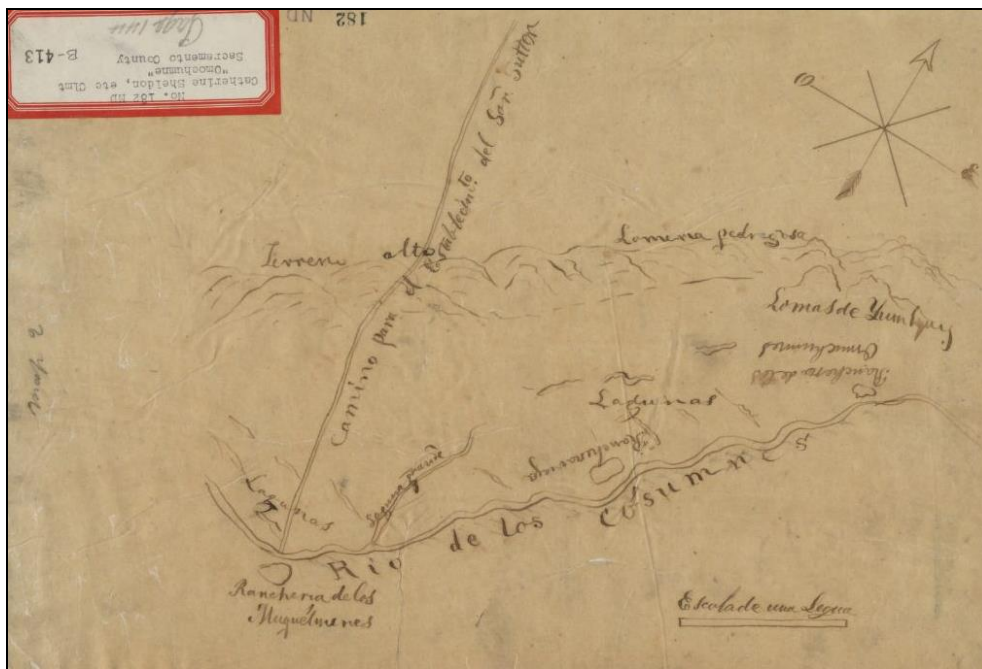 182 ND
No. 182 ND
Catherine Sheldon, etc Clmt
"Omochumne"
Sacramento County B-413
Camino para el Establecimto. del Señr Sutter
Terreno alto
Lomeria pedregosa
Lomas de Yumhui
Rancheria de los
Omuchumnes
Lagunas
Rancheria vieja
Laguna grande
Lagunas
Rio de los Cosumnes
Rancheria de los
Muquelmenes
Escala de una Legua